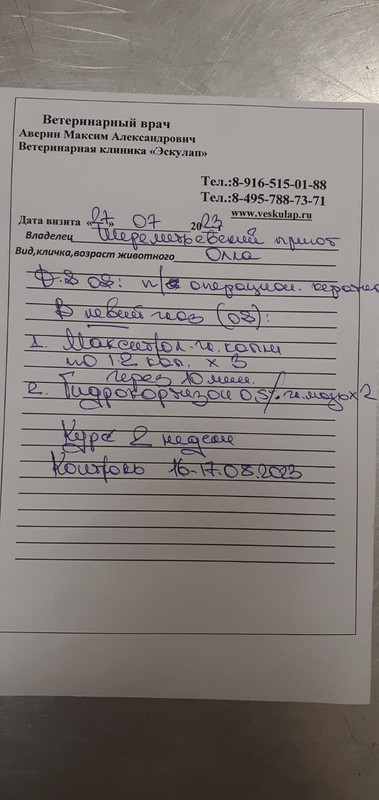 Ветеринарный врач
Аверин Максим Александрович
Ветеринарная клиника «Эскулап»
Тел.:8-916-515-01-88
Тел.:8-495-788-73-71
www.veskulap.ru
Дата визита «27» 07 2023г
Владелец Шереметьевский приют
Вид,кличка,возраст животного Олла
D-S OS: п/о операцион. керати
В левый глаз (OS):
1. Макситрол гл. капли
по 1-2 кап. х 3
через 10 мин.
2. Гидрокортизон 0,5% гл.мазь х 2
Курс 2 недели
Контроль 16-17.08.2023